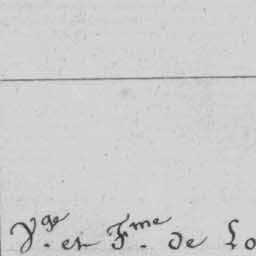 V.ge et F.me de Lo